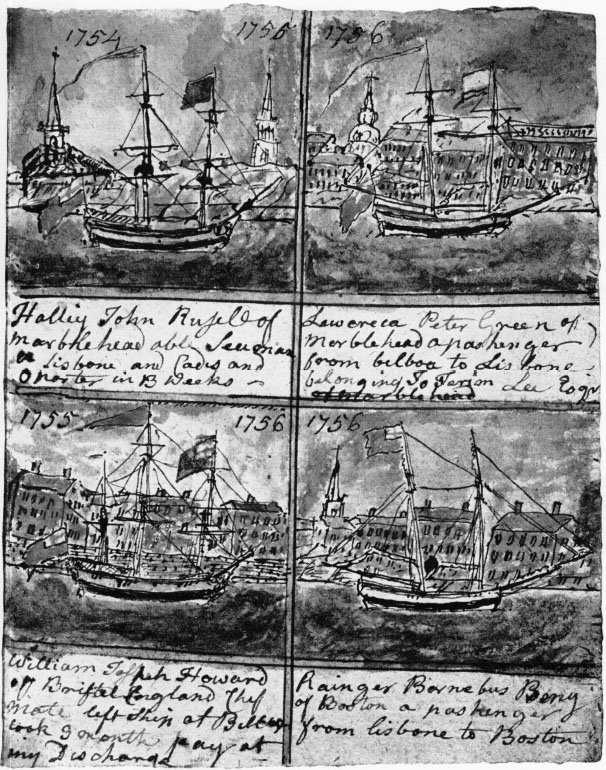 1754 1755
1756
Halliy John Rusell of
marblehead able Seaman
Lisbone and Cadis and
Oporter in 13 Weeks —
Lewcreca Peter Green of
Marblehead a pashenger
from bilboa to Lisbone
belonging To Jerson Lee Esqr
of Marblehead
1755 1756
1756
William Joseph Howard
of Bristel England Chef
mate left Ship at Bilboa
took 3 month pay at
my Discharge
Rainger Barnebus Beny
of Boston a pashenger
from lisbone to Boston